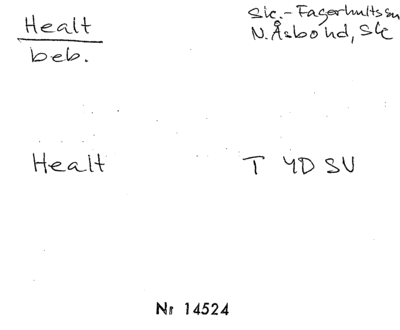 Healt
beb.
Sk.-Fagerhults sn
N.Åsbo hd, Sk
Healt
T 4D SV
Nr 14524